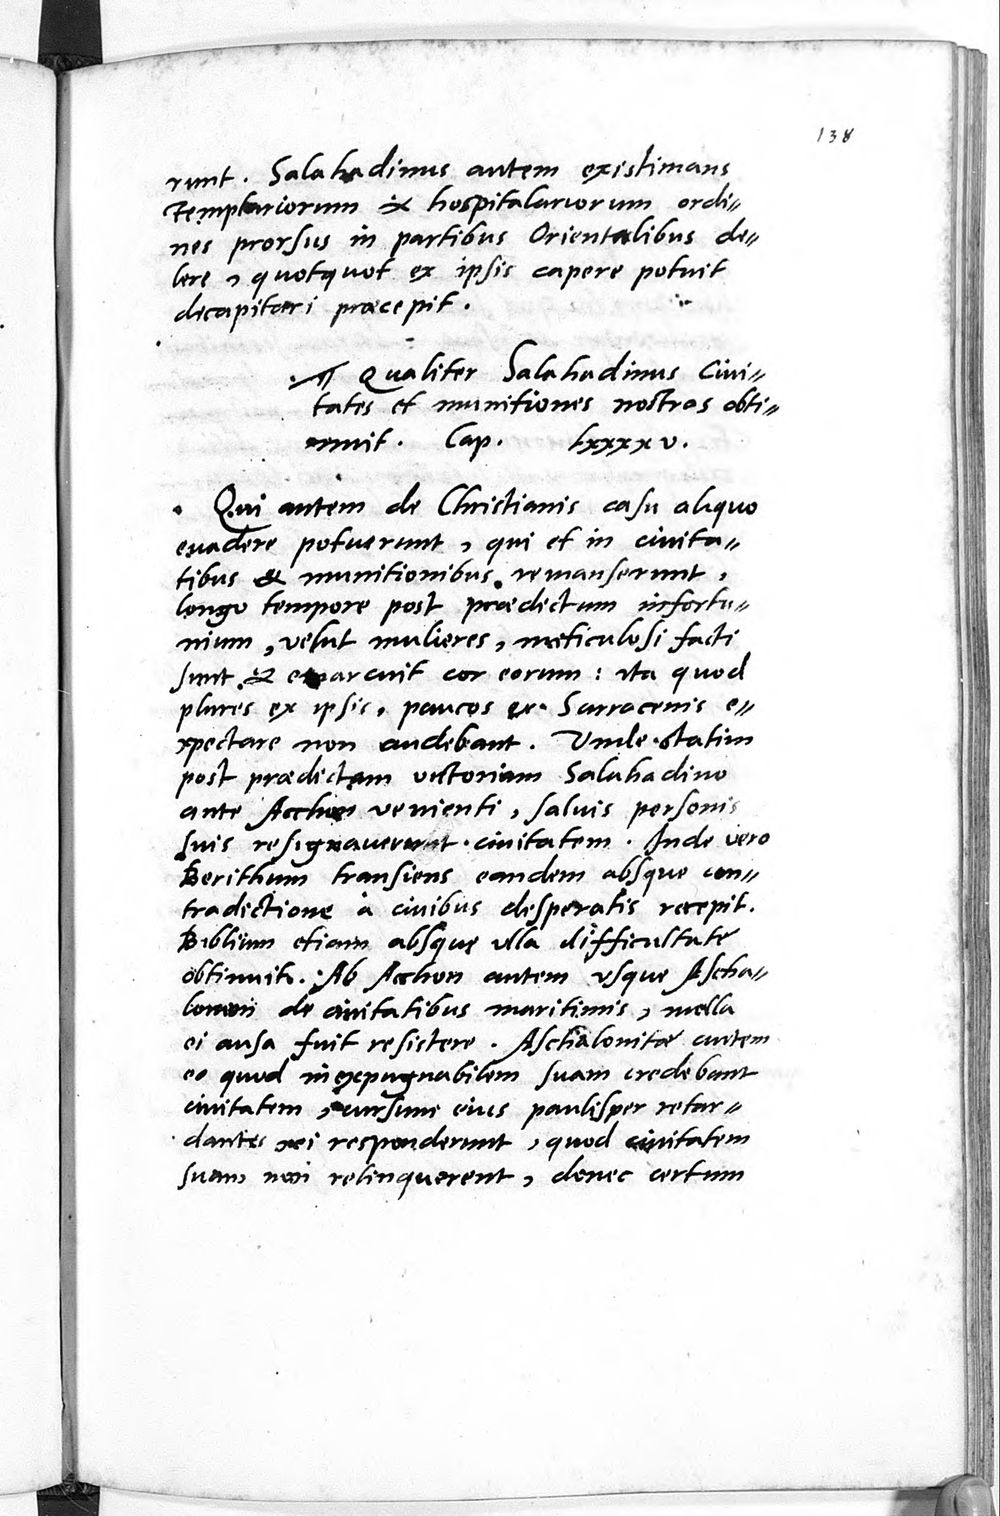 138
runt. Salahadinus autem existimans
Templariorum & hospitalariorum ordi=
nes prorsus in partibus Orientalibus de=
lere, quotquot ex ipsis capere potuit
decapitari præcepit.
¶ Qualiter Salahadinus Civi=
tates et munitiones nostras obti=
nuit. Cap. lxxxxv.
Qui autem de Christianis casu aliquo
euadere potuerunt, qui et in ciuita=
tibus & munitionibus remanserunt,
longo tempore post prædictum infortu=
nium, velut mulieres, meticulosi facti
sunt & emarcuit cor eorum: ita quod
plures ex ipsis, paucos ex Sarracenis e=
xpectare non audebant. Vnde statim
post prædictam victoriam Salahadino
ante Acchon venienti, saluis personis
suis resignauerunt ciuitatem. Inde vero
Berithum transiens eandem absque con=
tradictione à ciuibus desperatis recepit.
Biblium etiam absque vlla difficultate
obtinuit. Ab Acchon autem vsque Ascha=
lonam de ciuitatibus maritimis, nulla
ei ausa fuit resistere. Aschalonitæ autem
eo quod inexpugnabilem suam credebant
ciuitatem, cursum eius paulisper retar=
dantes ei responderunt, quod ciuitatem
suam non relinquerent, donec certum